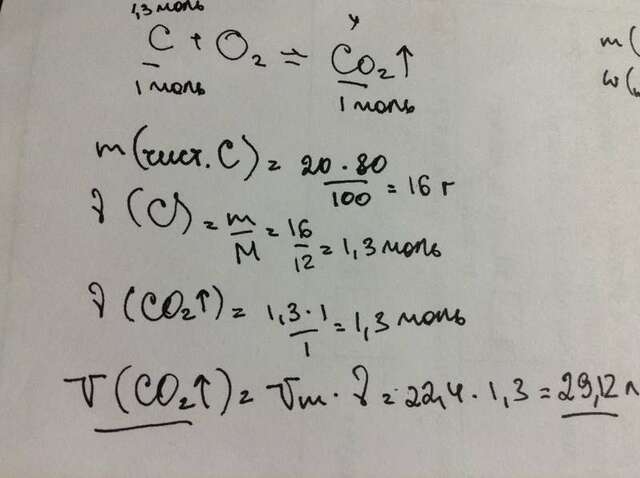 1,3 моль
C + O₂ = CO₂↑
1 моль 1 моль
m (чист. C) = 20 · 80 / 100 = 16 г
ν (C) = m / M = 16 / 12 = 1,3 моль
ν (CO₂↑) = 1,3 · 1 / 1 = 1,3 моль
V (CO₂↑) = Vm · ν = 22,4 · 1,3 = 29,12 л
m (
w (